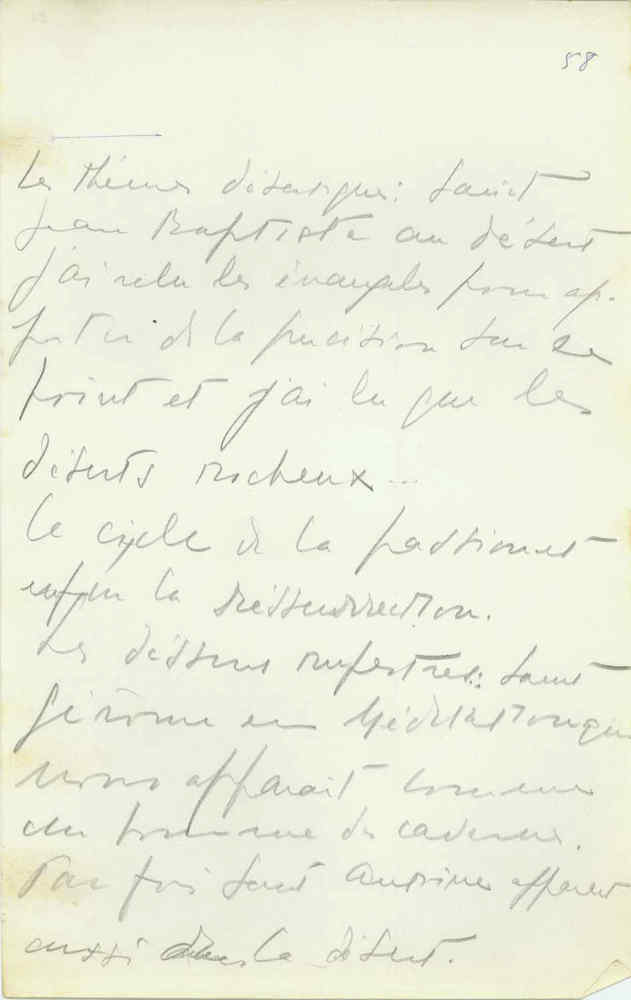 58
Les thèmes désertiques: Saint
Jean Baptiste au désert
j'ai relu les évangiles pour ap-
porter de la précision sur ce
point et j'ai lu que les
déserts rocheux...
Le cycle de la passion et
enfin la résurrection.
Les dessins rupestres: Saint
Jérôme en Méditation qui
nous apparait comme
un homme des cavernes.
Par fois Saint Antoine apparait
aussi dans le désert.